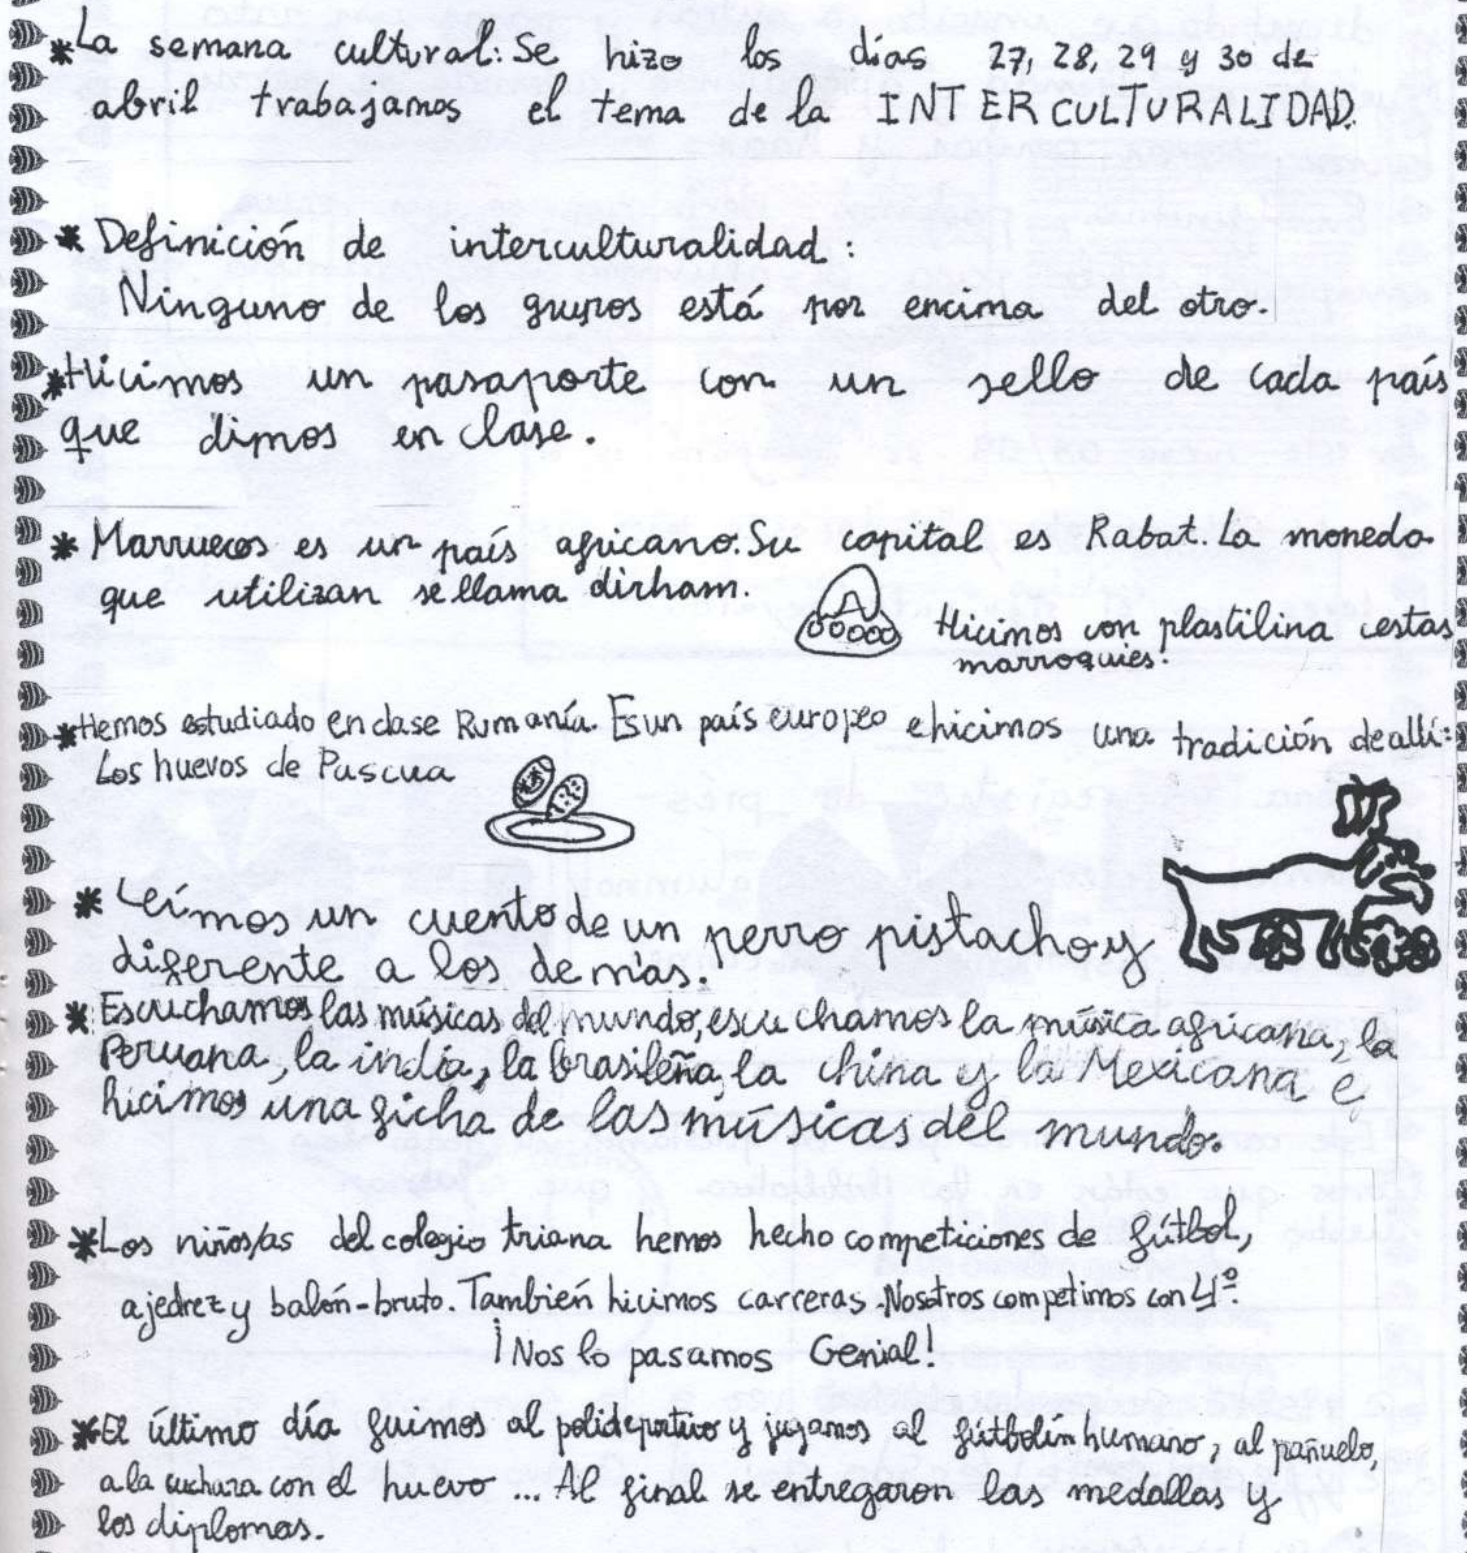 *La semana cultural: Se hizo los días 27, 28, 29 y 30 de
abril trabajamos el tema de la INTERCULTURALIDAD.
* Definición de interculturalidad:
Ninguno de los grupos está por encima del otro.
*Hicimos un pasaporte con un sello de cada país
que dimos en clase.
* Marruecos es un país africano. Su capital es Rabat. La moneda
que utilizan se llama dirham.
Hicimos con plastilina cestas
marroquies.
*Hemos estudiado en clase Rumanía. Es un país europeo e hicimos una tradición de allí:
Los huevos de Pascua
* Leímos un cuento de un perro pistacho y
diferente a los demás.
* Escuchamos las músicas del mundo, escuchamos la música africana, la
Peruana, la india, la brasileña, la china y la Mexicana e
hicimos una ficha de las músicas del mundo.
*Los niños/as del colegio triana hemos hecho competiciones de fútbol,
ajedrez y balón-bruto. También hicimos carreras. Nosotros competimos con 4º.
¡Nos lo pasamos Genial!
*El último día fuimos al polideportivo y jugamos al fútbolín humano, al pañuelo,
a la cuchara con el huevo ... Al final se entregaron las medallas y
los diplomas.